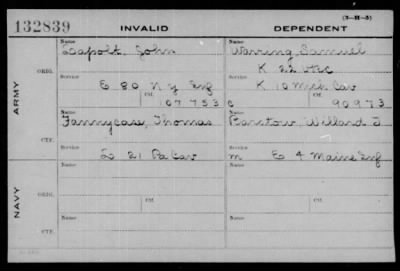 (3-H-5)
132839 INVALID DEPENDENT
ARMY
ORIG.
Name Name
Lapolt, John Warring, Samuel
K 22 VRC
Service Service
E 80 N Y Inf K 10 Mich Cav
Ctf. Ctf.
107 753 c 90973
CTF.
Name Name
Fannycase, Thomas Barstow, Willard J
Service Service
L 21 Pa Cav m E 4 Maine Inf
NAVY
ORIG.
Name Name
Service Ctf. Service Ctf.
CTF.
Name Name